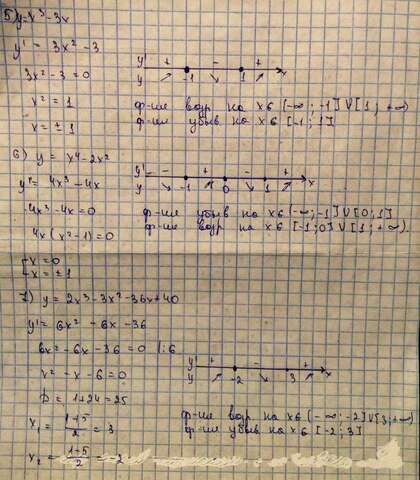 5) y = x³ - 3x
y' = 3x² - 3
3x² - 3 = 0
x² = 1
x = ± 1
y' + - +
y -1 1 x
ф-ция возр на x ∈ [-∞; -1] V [1; +∞)
ф-ция убыв на x ∈ [-1; 1]
6) y = x⁴ - 2x²
y' = 4x³ - 4x
4x³ - 4x = 0
4x(x² - 1) = 0
x = 0
x = ± 1
y' - + - +
y -1 0 1 x
ф-ция убыв на x ∈ (-∞; -1] V [0; 1]
ф-ция возр на x ∈ [-1; 0] V [1; +∞).
7) y = 2x³ - 3x² - 36x + 40
y' = 6x² - 6x - 36
6x² - 6x - 36 = 0 |:6
x² - x - 6 = 0
D = 1 + 24 = 25
x₁ = (1+5)/2 = 3
x₂ = (1-5)/2 = -2
y' + - +
y -2 3 x
ф-ция возр на x ∈ (-∞; -2] V [3; +∞)
ф-ция убыв на x ∈ [-2; 3]